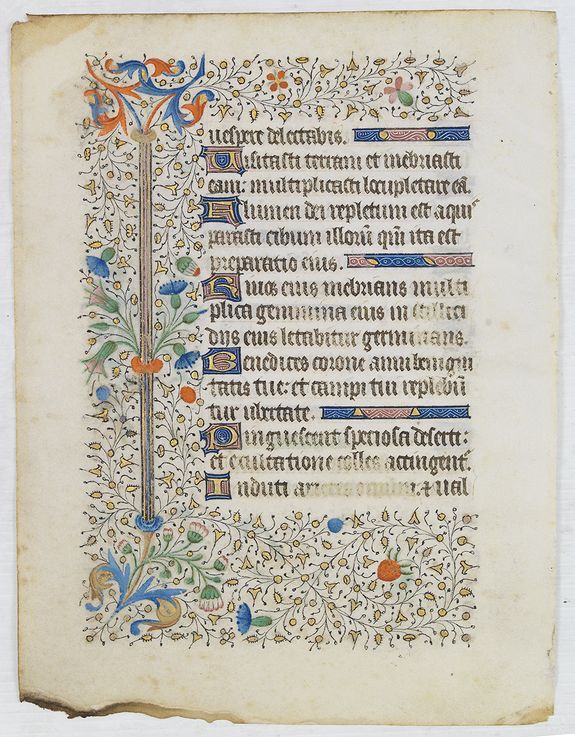 uespere delectabis.
Uisitasti terram et inebriasti
eam: multiplicasti locupletare eā.
Flumen dei repletum est aquis
parasti cibum illorū qm̄ ita est
preparatio eius.
Riuos eius inebrians multi
plica genimina eius in stillici
dijs eius letabitur germinans.
Benedices corone anni benigni
tatis tue: et campi tui replebū
tur ubertate.
Pinguescent speciosa deserti:
et exultatione colles accingent᷑.
Induti arietes ouium. & uall